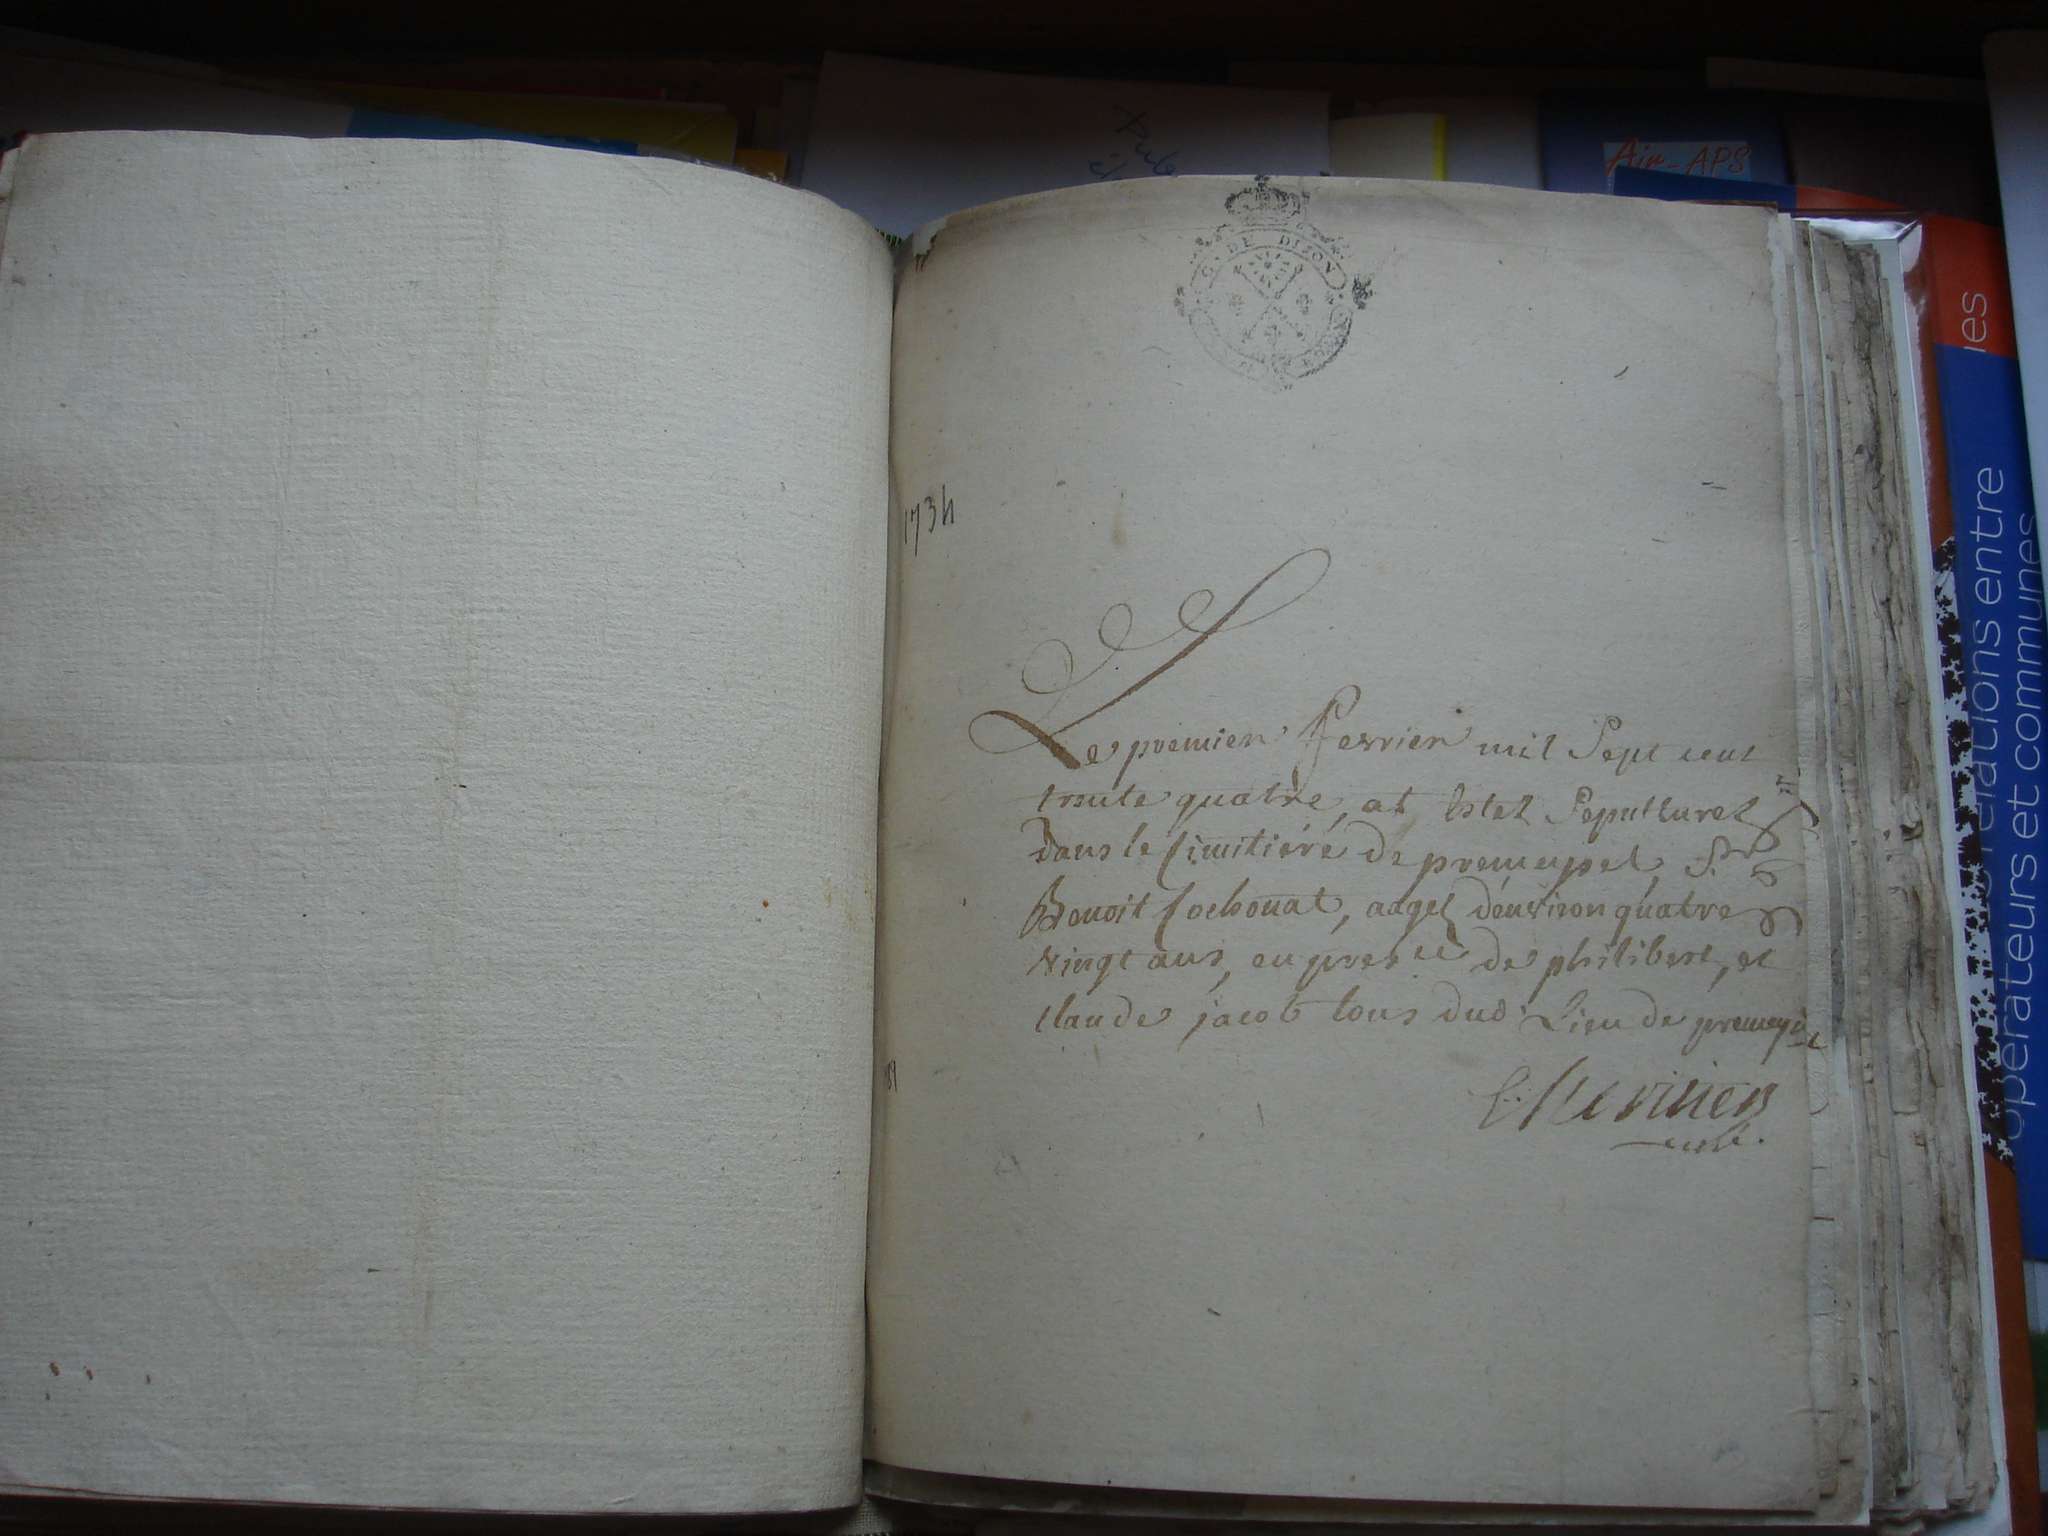 Xule
Air-APS
G. DE DIJON
1734
Le premier Fevrier mil Sept cent
trente quatre, at Estez Sepulturez
Dans le Cimitiéré de premeypel, Sr
Benoit Cochonat, aagez d'environ quatre
vingt ans, en presce de philibert, et
claude jacob tous dud. Lieu de premeypel
curé.
ies
relations entre
opérateurs et communes